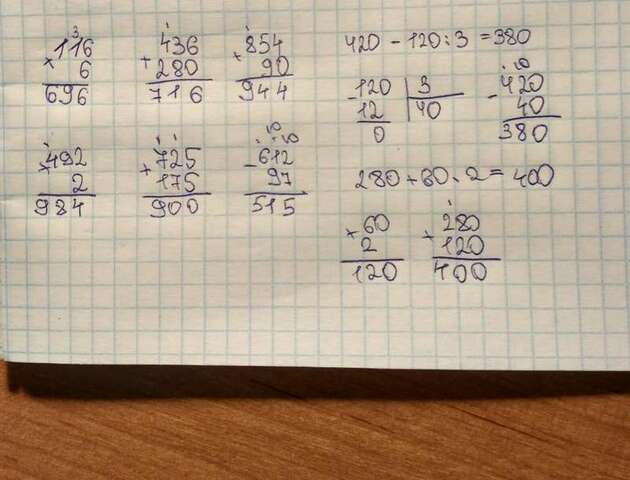 3
116
× 6
696
1
436
+ 280
716
1
854
+ 90
944
1
492
× 2
984
1 1
725
+ 175
900
. 10 . 10
612
- 97
515
420 - 120 : 3 = 380
120 | 3
- 12 | 40
0
. 10
420
- 40
380
280 + 60 · 2 = 400
60
× 2
120
1
280
+ 120
400